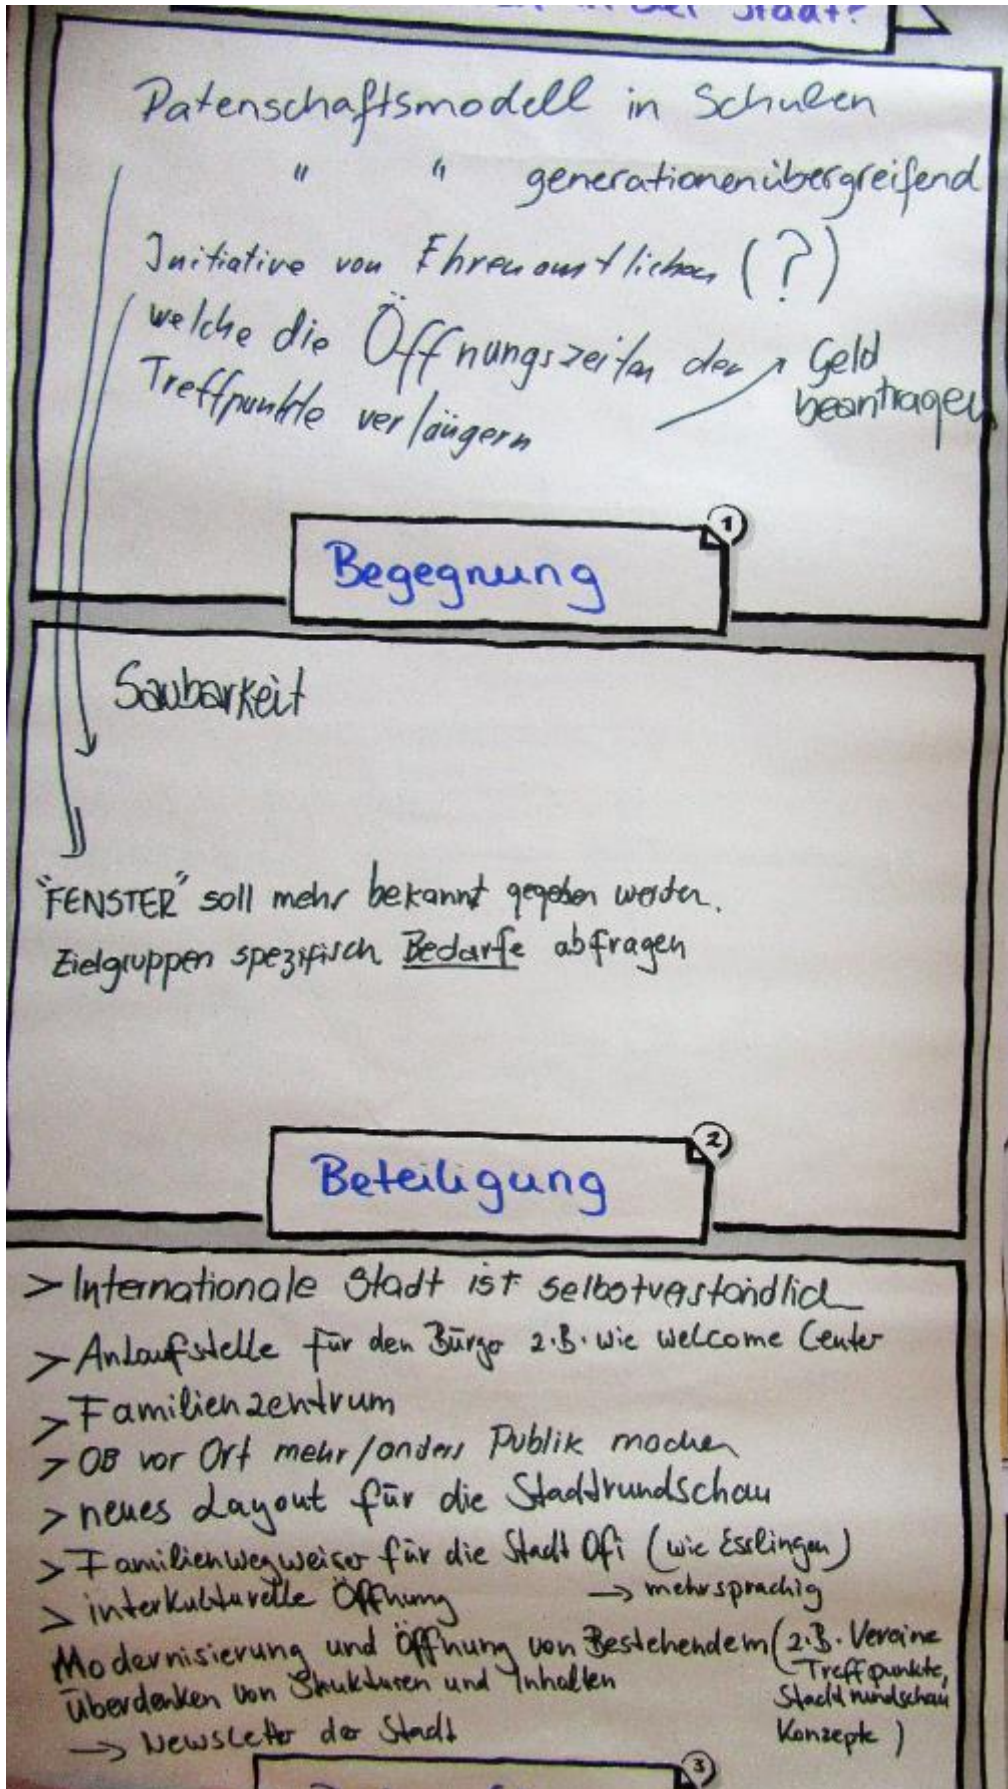 in der Stadt?
Patenschaftsmodell in Schulen
" " generationenübergreifend
Initiative von Ehrenamtlichen (?)
welche die Öffnungszeiten der
Treffpunkte verlängern
Geld
beantragen
1
Begegnung
Saubarkeit
"FENSTER" soll mehr bekannt gegeben werden.
Zielgruppen spezifisch Bedarfe abfragen
2
Beteiligung
> Internationale Stadt ist selbstverständlich
> Anlaufstelle für den Bürger z.B. wie welcome Center
> Familienzentrum
> OB vor Ort mehr/anders Publik machen
> neues Layout für die Stadtrundschau
> Familienwegweiser für die Stadt Ofi (wie Esslingen)
→ mehrsprachig
> interkulturelle Öffnung
Modernisierung und Öffnung von Bestehendem (z.B. Vereine
Treffpunkte,
Überdenken von Strukturen und Inhalten
Stadtrundschau
Konzepte)
→ Newsletter der Stadt
3